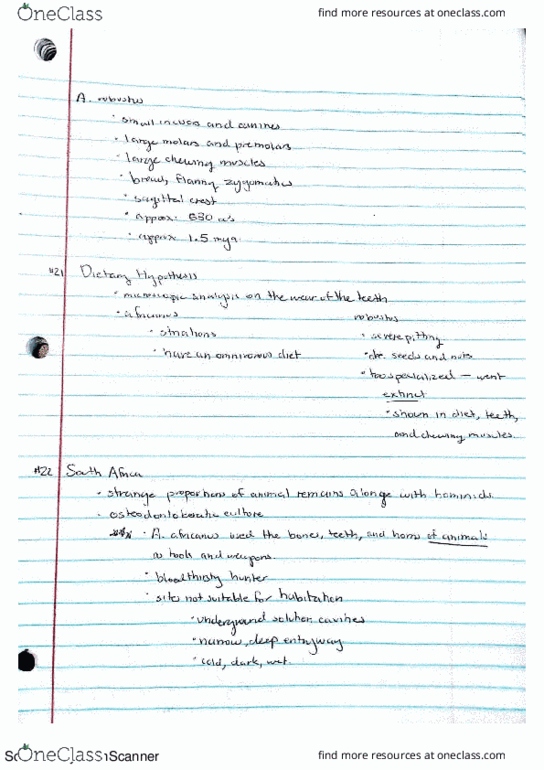 OneClass
find more resources at oneclass.com
A. robustus
· small incisors and canines
· large molars and premolars
· large chewing muscles
· broad, flaring zygomatics
· sagittal crest
· approx. 530 cc's
· approx 1.5 mya
#21 Dietary Hypothesis
· microscopic analysis on the wear of the teeth
· africanus
· striations
· have an omnivorous diet
robustus
· severe pitting
· seeds and nuts
· too specialized — went
extinct
· shown in diet, teeth,
and chewing muscles.
#22 South Africa
· strange proportions of animal remains alonge with hominids
· osteodontokeratic culture
*** · A. africanus used the bones, teeth, and horns of animals
as tools and weapons.
· bloodthirsty hunter
· sites not suitable for habitation
· underground solution cavities
· narrow, deep entryway
· cold, dark, wet.
OneClass
Scanner
find more resources at oneclass.com